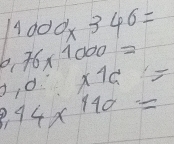 1000 x 346 =
0,76 x 1000 =
0,0 x 10 =
3,14 x 110 =